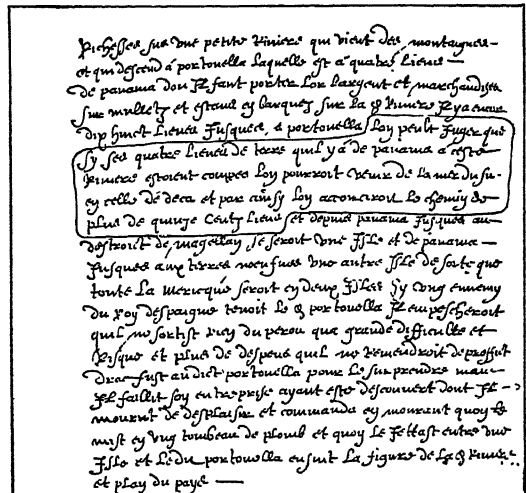 Richesses sur une petite Riviere qui vient des montaignes
et qui descend a portouella laquelle est a quatre lieues
de panama don Il fault porter lor largent et marchandises
sur mulletz et estans en barques sur la d Riviere Il y a encore
dix huict lieues Jusques a portouella Lon peult Juger que
sy ses quatre lieues de terre quil y a de panama a ceste
Riviere estoient coupes lon pourroit venir de la mer du su
en celle de deca et par ainsy lon accourciroit le chemin de
plus de quinze Centz lieues et depuis panama Jusques au
destroit de magellan se seroit une Isle et de panama
Jusques aux terres noeufves une autre Isle de sorte que
toute La mericque seroit en deux Isles sy ung ennemy
du roy despaigne tenoit le d portouella Il empescheroit
quil ne sortist rien du perou qua grande difficulte et
Risque et plus de despens quil ne Reviendroit de proffit
drac fust au dict portouella pour le surprendre mais
Il faillit son entreprise ayant este descouvert dont Il
mourut de desplaisir et commanda en mourant quon le
mist en ung tombeau de plomb et quon le Jettast entre une
Isle et ledit portouella ensuit la figure de la d Riviere
et plan du pays